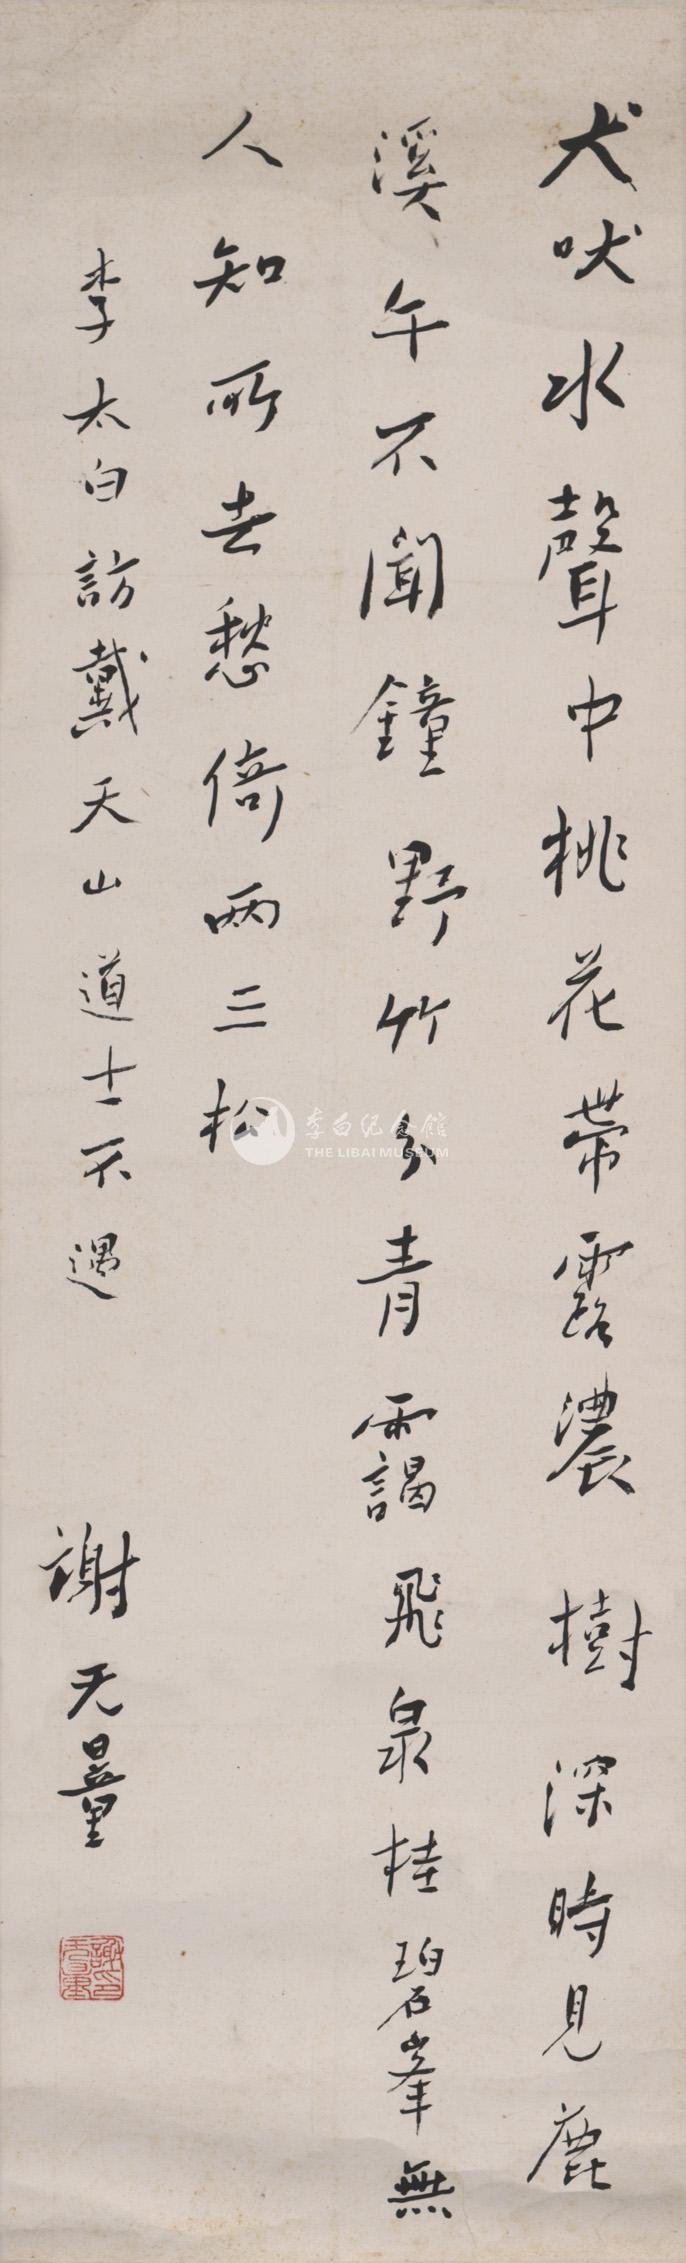 犬吠水聲中桃花帶露濃樹深時見鹿
溪午不聞鐘野竹分青靄飛泉挂碧峯無
人知所去愁倚兩三松
李太白訪戴天山道士不遇
謝无量
李白纪念館
THE LIBAI MUSEUM